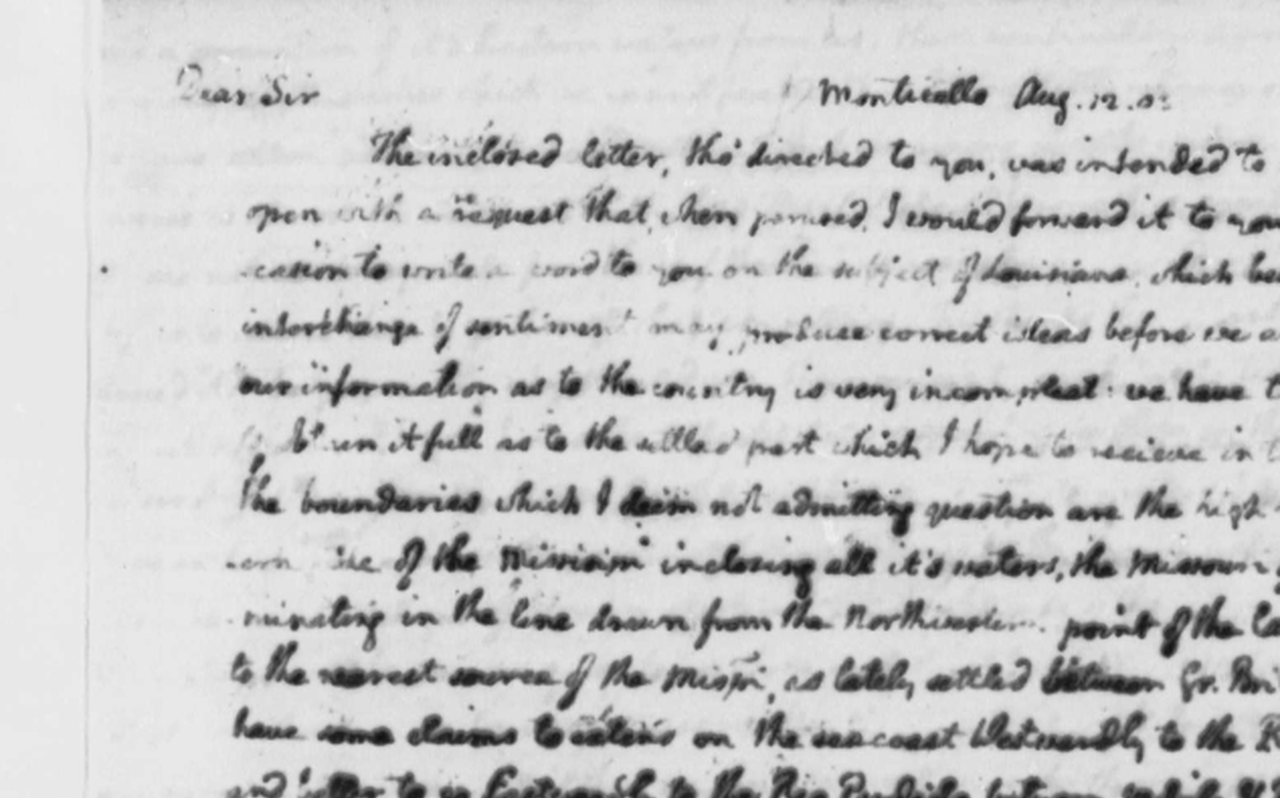 Dear Sir Monticello Aug. 12. 03.
The inclosed letter, tho' directed to you, was intended to
open with a request that when perused, I would forward it to you
casion to write a word to you on the subject of Louisiana, which
interchange of sentiment may produce correct ideas before we
our information as to the country is very incompleat: we have
full as to the settled part which I hope to recieve in
the boundaries which I deem not admitting question are the high
side of the Missisipi inclosing all it's waters, the Missouri
minating in the line drawn from the Northwestern point of the
to the nearest source of the Missipi, as lately settled between Gr.
have some claims to extend on the sea coast Westwardly to the
and better to go Eastwardly to the Rio Perdido, between